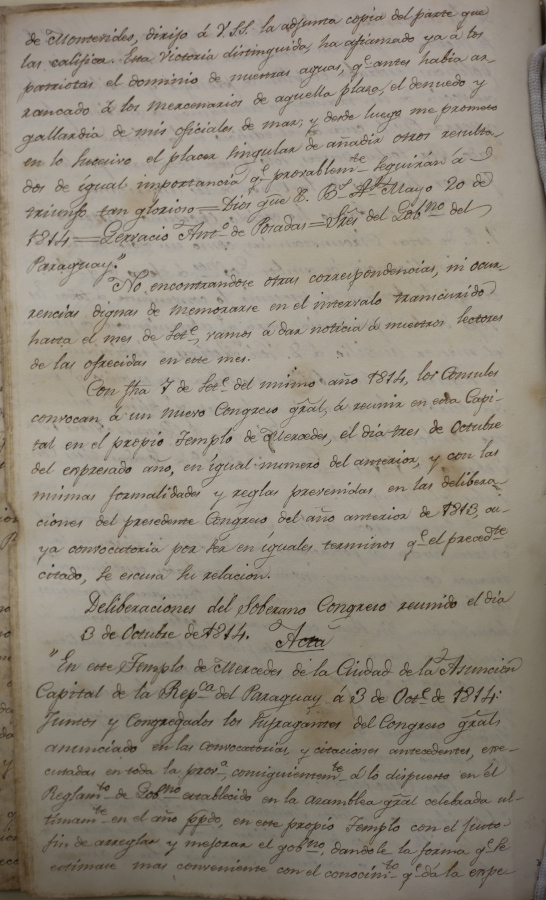 de Montevideo, dirijo á V.SS. la adjunta copia del parte que
las califica. Esta Victoria distinguida, ha afianzado ya á los
patriotas el dominio de nuestras aguas, q.e antes habia ar-
rancado á los mercenarios de aquella plaza, el denuedo y
gallardia de mis oficiales de mar; y desde luego me prometo
en lo sucesivo el placer singular de añadir otros resulta-
dos de igual importancia q.e provablem.te seguirán á
triunfo tan glorioso = Dios gue. B.s A.s Mayo 20 de
1814 = Gervacio Ant.o de Posadas = SSres del Gob.no del
Paraguay."
No encontrandose otras correspondencias, ni ocur-
rencias dignas de memorarse en el intervalo transcurrido
hasta el mes de Set.e, vamos á dar noticia á nuestros lectores
de las ofrecidas en este mes.
Con fha 7 de Set.e del mismo año 1814, los Consules
convocan á un nuevo Congreso gral, á reunir en esta Capi-
tal en el propio Templo de Mercedes, el día tres de Octubre
del expresado año, en igual numero del anterior, y con las
mismas formalidades y reglas prevenidas en las delibera-
ciones del presedente Congreso del año anterior de 1813, cu-
ya convocatoria por ser en iguales terminos q.e el preced.te
citado, se escusa su relacion.
Deliberaciones del Soberano Congreso reunido el día
3 de Octubre de 1814. Acta
"En este Templo de Mercedes de la Ciudad de la Asuncion
Capital de la Rep.ca del Paraguay á 3 de Oct.e de 1814:
Juntos y Congregados los sufragantes del Congreso gral
anunciado en las convocatorias, y citaciones antecedentes, exe-
cutadas en toda la prov.a, consiguientem.te á lo dispuesto en el
Reglam.to de Gob.no establecido en la asamblea gral celebrada ul-
timam.te en el año ppdo, en este propio Templo con el justo
fin de arreglar y mejorar el gob.no, dandole la forma q.e se
estimase mas conveniente con el conocim.to q.e dá la expe